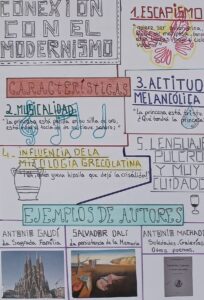 CONEXIÓN
CON EL
MODERNISMO
1. ESCAPISMO
CARACTERÍSTICAS
2. MUSICALIDAD
"La princesa está pálida en su silla de oro,
está mudo el teclado de su clave sonoro;"
3. ACTITUD
MELANCÓLICA
"La princesa está triste
¿Qué tendrá la princesa
4. INFLUENCIA DE LA
MITOLOGÍA GRECOLATINA
que dejó la crisálida!"
5. LENGUAJE
PULCRO
Y MUY
CUIDADO
EJEMPLOS DE AUTORES
ANTONIO GAUDÍ
La Sagrada Familia
SALVADOR DALÍ
La persistencia de la Memoria
ANTONIO MACHADO
Soledades. Galerías.
Otros poemas.